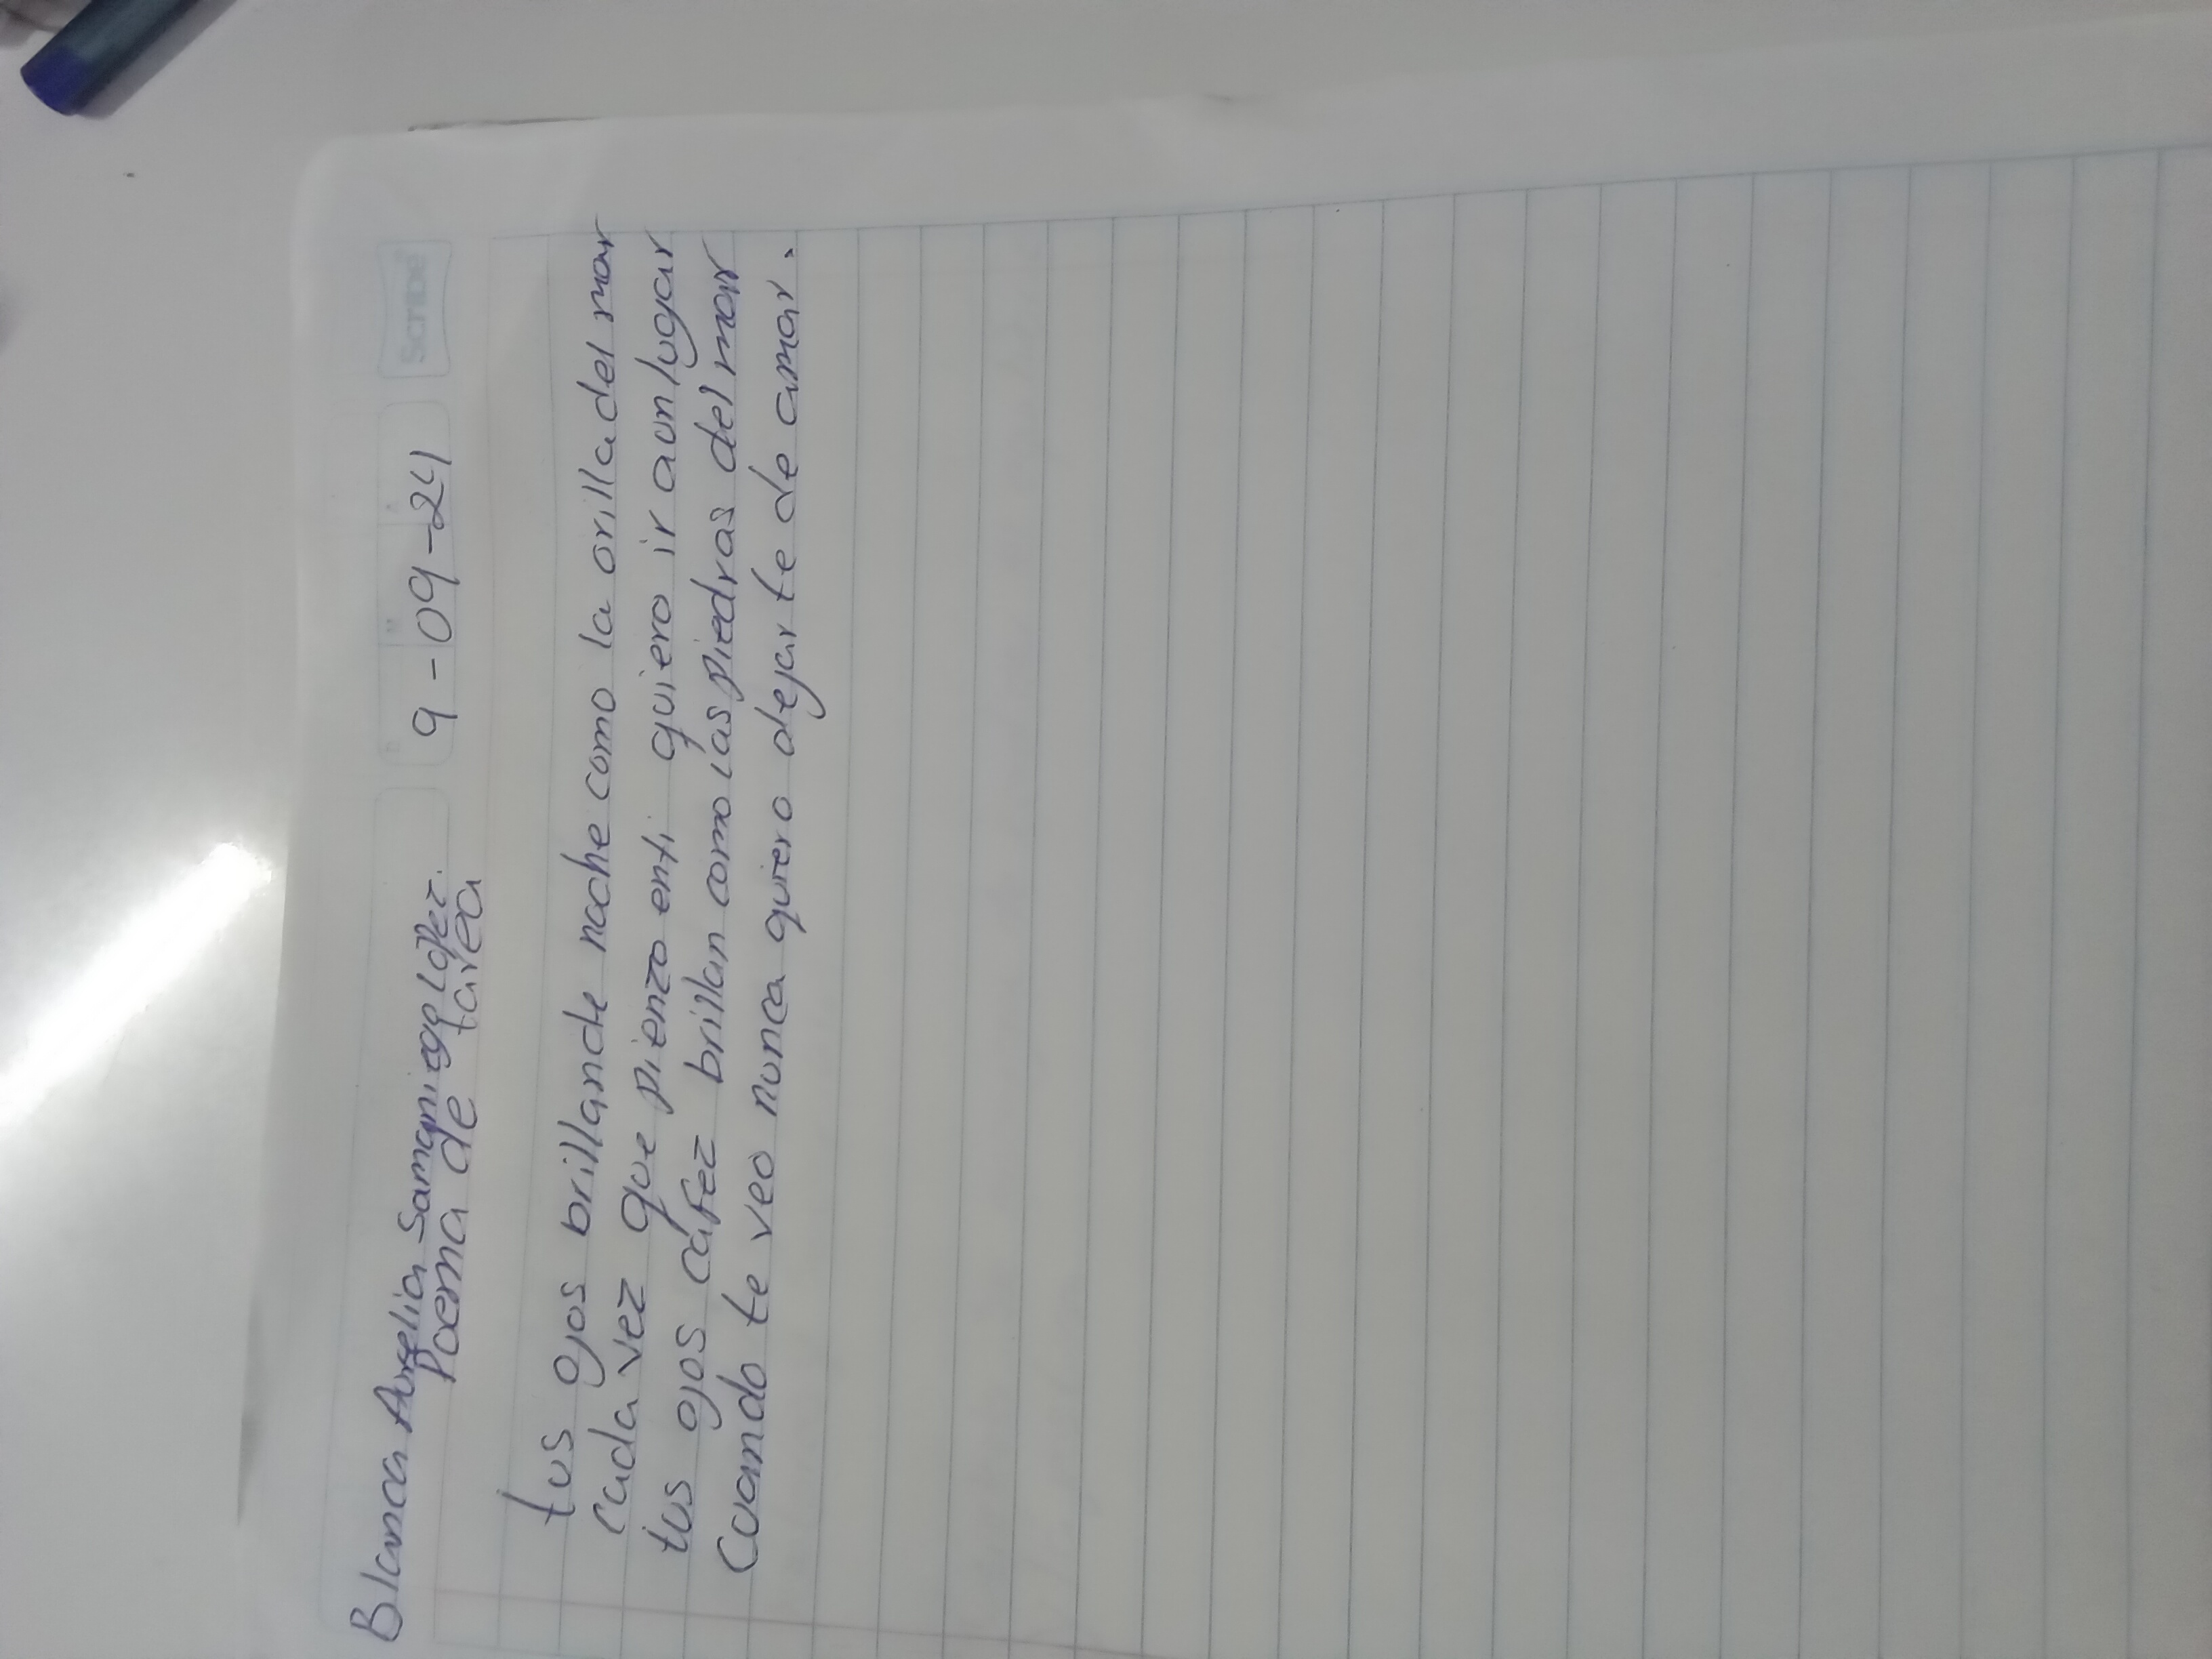 Scribe
Blanca Aurelia Samaniego López. 9-09-24
Poema de tarea
tus ojos brillande noche como la orilla del mar
cada vez que pienzo enti quiero ir aon lugar
tus ojos cafez brillan como las piedras del mar
Cuando te veo nunca quiero dejar te de amar.